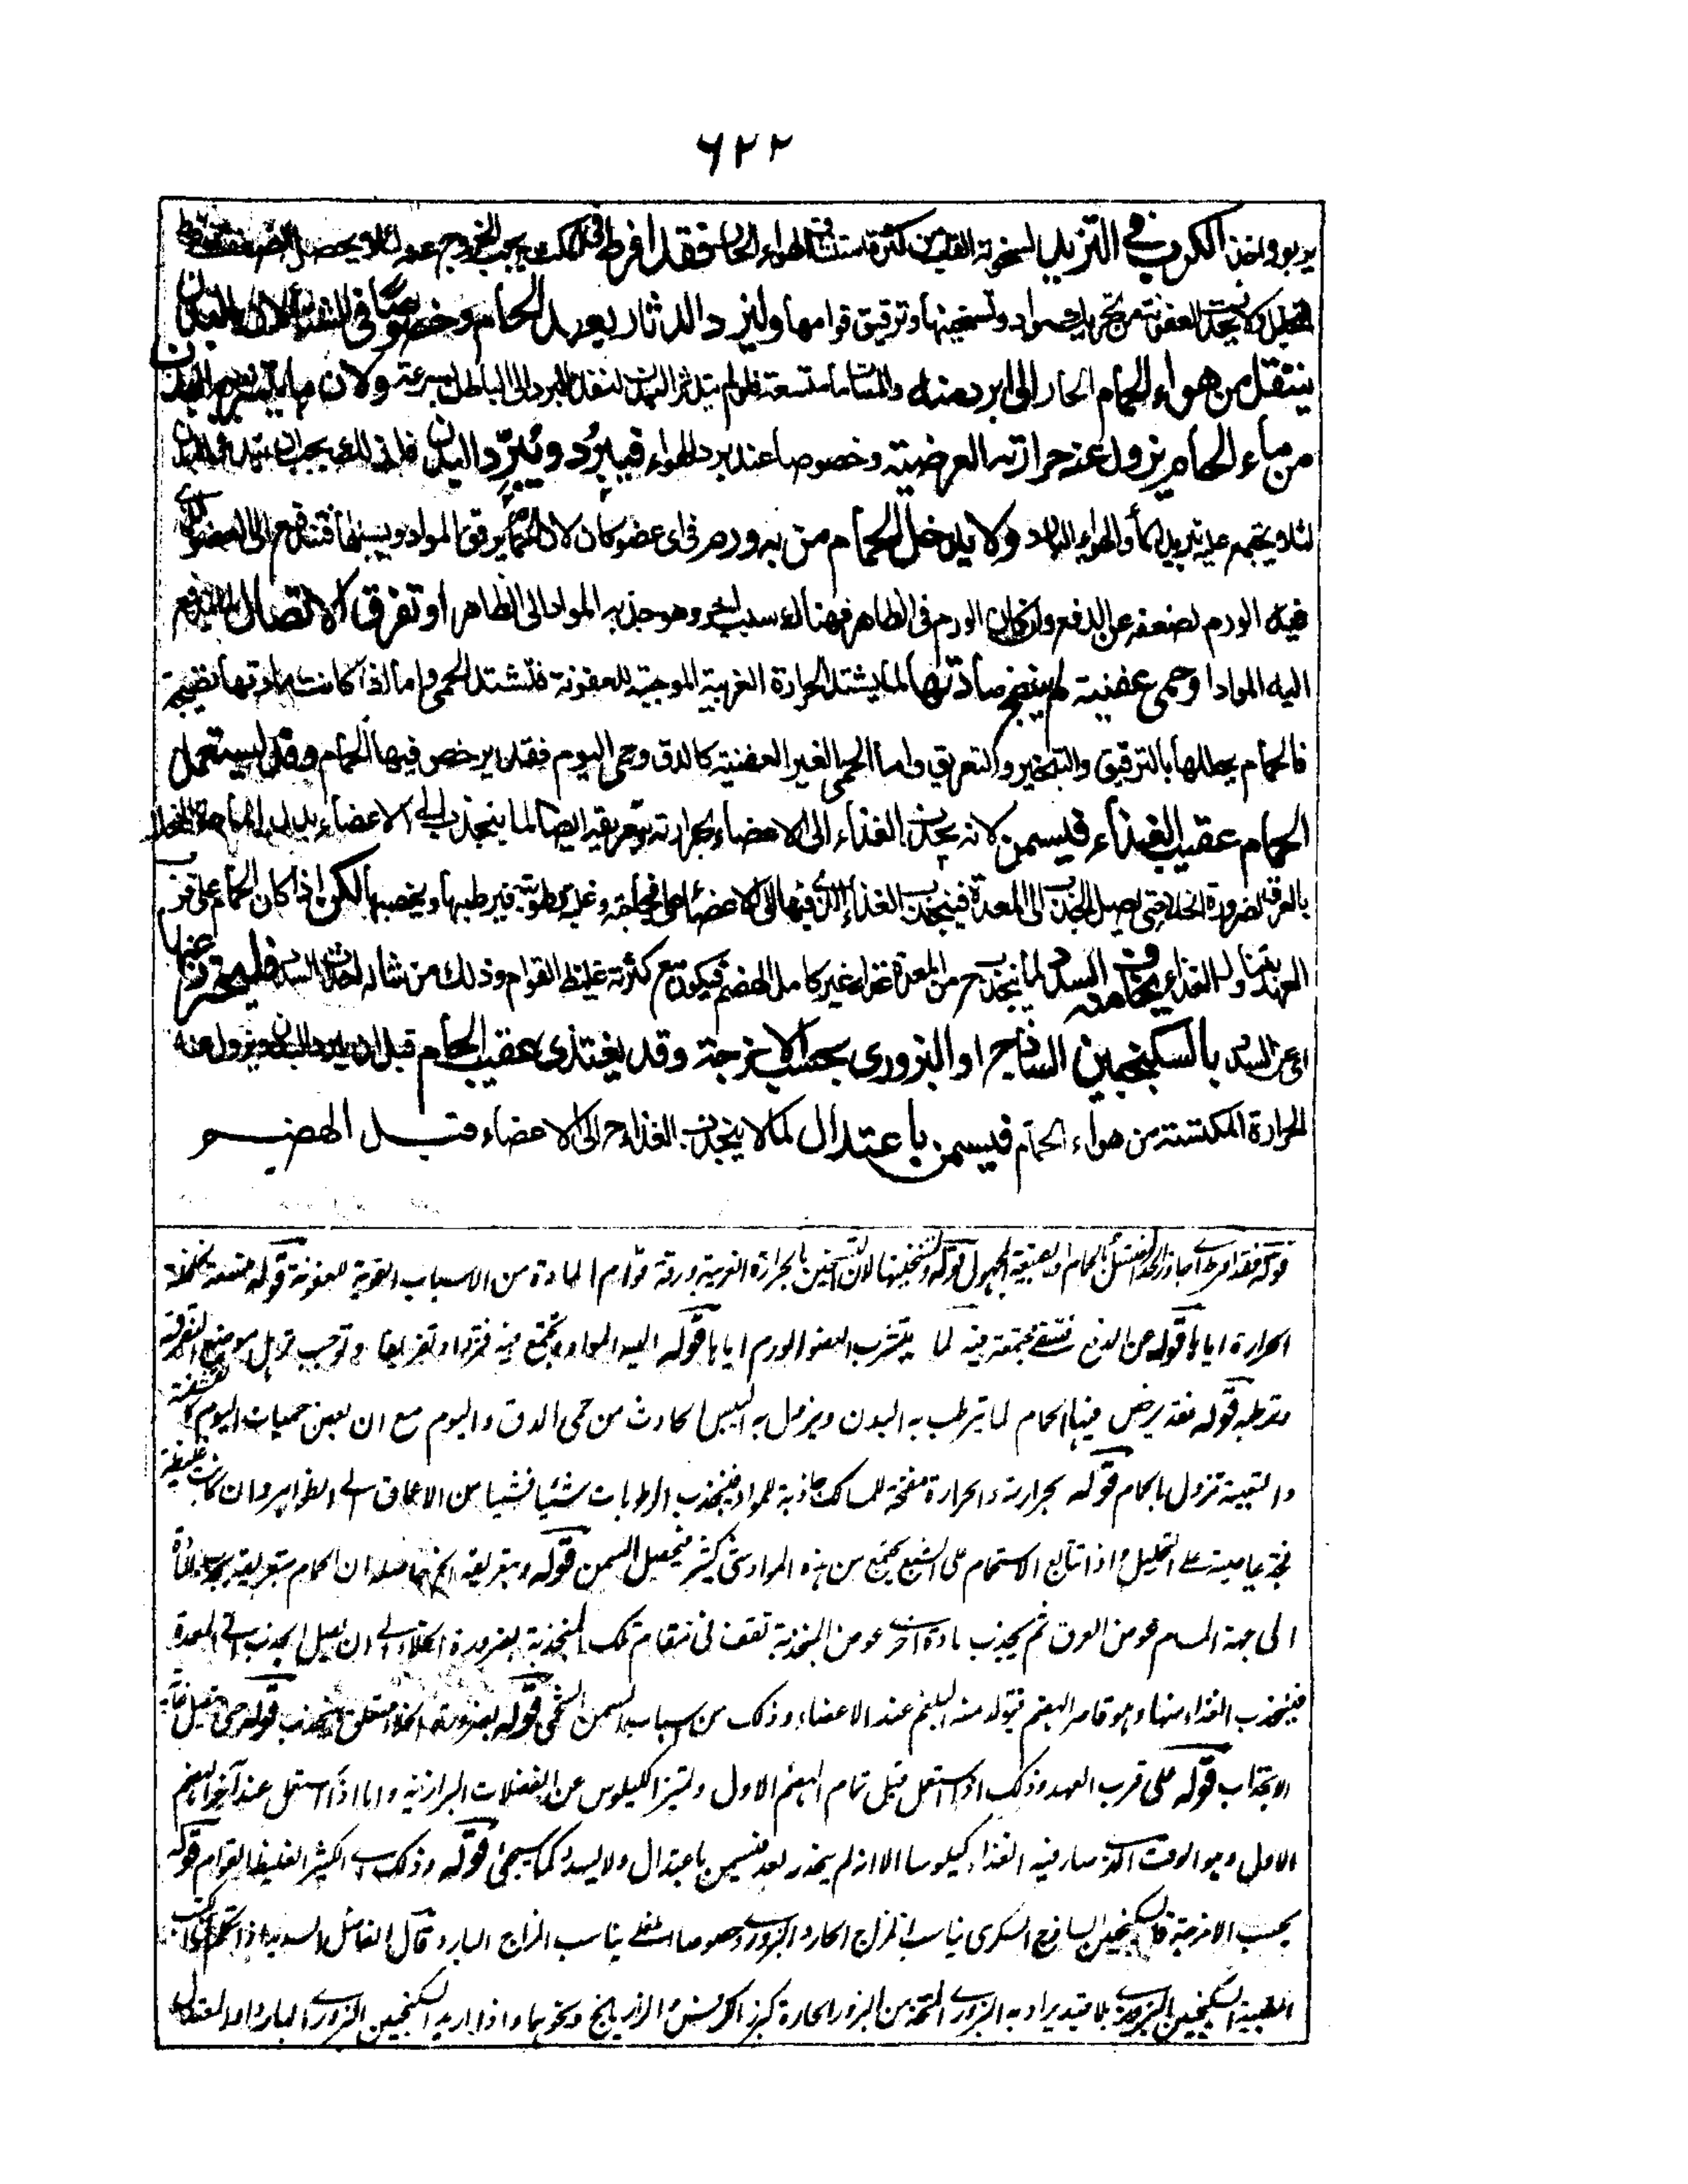 ٦٢٢
يربو واخذ الكرب في التزيد لسخونة القلب من كثرة استنشاق الهواء الحار فقد افرط في المكث يجب الخروج عنه لئلا يحصل
العفونة من تحريك المواد وتسخينها وترقيق قوامها وليزد الدثار بعد الحمام وخصوصا في الشتاء لان البدن
ينتقل من هواء الحمام الحار الى ابرد منه والمسامات متسعة فلو لم يتدثر البدن لنفذ البرد الى الباطن بسرعة ولان ما يتشربه البدن
من ماء الحمام يزول عنه حرارته العرضية وخصوصا عند برد الهواء فيبرُد ويُبرِّد البدن فلذلك يجب ان
لئلا يجتمع عليه تبريد الماء والهواء البارد ولا يدخل الحمام من به ورم في اى عضو كان لان الحمام يرقق المواد ويسيلها فتندفع الى العضو الذى
فيه الورم لضعفه عن الدفع وان كان الورم في الظاهر فهناك سبب اخر وهو جذبه المواد الى الظاهر او تفرق الاتصال لما يندفع
اليه المواد او حمى عفنية لم ينضج مادتها لما يشتد الحرارة الغريبة الموجبة للعفونة فلتشتد الحمى واما اذا كانت مادتها نضيجة
فالحمام يحللها بالترقيق والتبخير والتعريق واما الحمى الغير العفنية كالدق وحمى اليوم فقد يرخص فيها الحمام وقد يستعمل
الحمام عقيب الغذاء فيسمن لانه يجذب الغذاء الى الاعضاء بحرارته وتعريقه ايضا لما ينجذب الى الاعضاء بدل
بالعرق لضرورة الخلاء حتى يصل الجذب الى المعدة فينجذب الغذاء الذى فيها الى الاعضاء على فجاجته وغلبة رطوبته فيرطبها ويخصبها لكن اذا كان الحمام على قرب
العهد بتناول الغذاء يخاف منه السدد لما ينجذب ح من المعدة غذاء غير كامل الهضم فيكون مع كثرته غليظ القوام وذلك من شانه احداث السدد فليحترز عنها
اى عن السدد بالسكنجبين الساذج او البزورى بحسب الامزجة وقد يغتذى عقيب الحمام قبل ان يبرد البدن ويزول عنه
الحرارة المكتسبة من هواء الحمام فيسمن باعتدال لما لا ينجذب الغذاء ح الى الاعضاء قبل الهضم
قوله فقد افرط اى جاوز الحد المغتسل بالحمام او بصيغة المجهول قوله وتسخينها لان التسخين بالحرارة الغريبة ورقة قوام المادة من الاسباب القوية للعفونة قوله متسعة
الحرارة اياها قوله عن الدفع فتبقى مجتمعة فيه لما يتشرب العضو الورم اياها قوله اليه المواد وتجتمع فيه فتزداد تفريقا وتوجب تورم موضع التفرقة
قوله فقد يرخص فيها الحمام لما يترطب به البدن ويزول به اليبس الحادث من حمى الدق واليوم مع ان بعض حميات اليوم كالقشفية
والتعبية تزول بالحمام قوله بحرارته والحرارة مفتحة للمسالك جاذبة للمواد فينجذب الرطوبات شيئا فشيئا من الاعماق الى الظواهر وان كانت غليظة
فجة عاصية على التحليل واذا تتابع الاستحمام على الشبع يجتمع من هذه المواد شئ كثير فيحصل السمن قوله وبتعريقه الخ حاصله ان الحمام بتعريقه يجذب المادة
الى جهة المسام عوض العرق ثم يجذب مادة اخرى عوض المنجذبة تقف في مقام تلك المنجذبة بضرورة الخلاء الى ان يصل الجذب الى المعدة
فينجذب الغذاء منها وهو قاصر الهضم فيتولد منه البلغم عند الاعضاء وذلك من اسباب السمن الشحمى قوله بضرورة الخلاء متعلق بينجذب قوله حتى يصل غاية
الانجذاب قوله على قرب العهد وذلك اذا استعمل قبل تمام الهضم الاول وتميز الكيلوس عن الفضلات البرازية واما اذا استعمل عند آخر الهضم
الاول وهو الوقت الذى صار فيه الغذاء كيلوسا الا انه لم ينحدر بعد فيسمن باعتدال ولا يسدد كما سيجئ قوله وذلك اى الكثير الغليظ القوام قوله
بحسب الامزجة فالسكنجبين الساذج السكرى يناسب المزاج الحار والبزورى وخصوصا العسلى يناسب المزاج البارد قال الفاضل السديد اذا
الطبية السكنجبين البزورى بلا قيد يراد به البزورى المتخذ من البزور الحارة كبزر الكرفس والرازيانج ونحوهما واذا اريد السكنجبين البزورى البارد او المعتدل